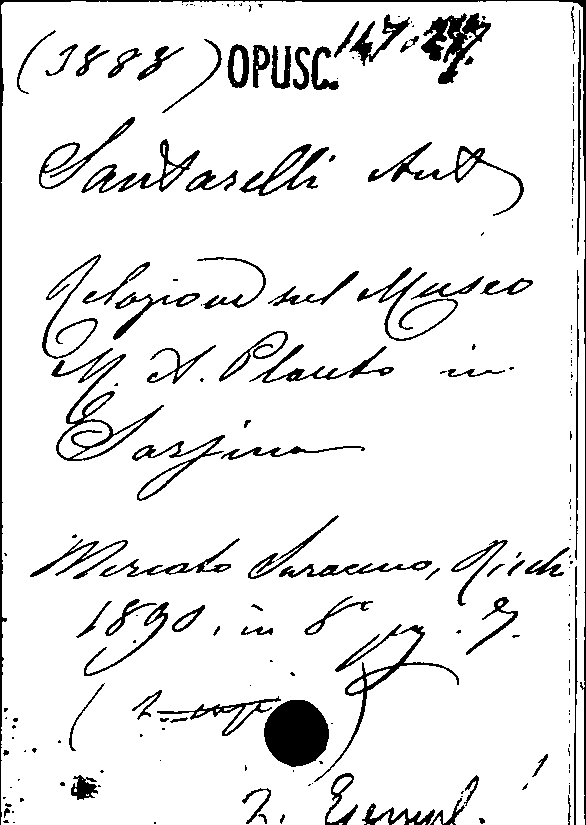 (3888) OPUSC. 147.
Santarelli Ant
Relazione sul Museo
M. A. Plauto in
Sarsina
Mercato Saraceno,
1890. in 8° pag. 7.
(2
2. Esempl.